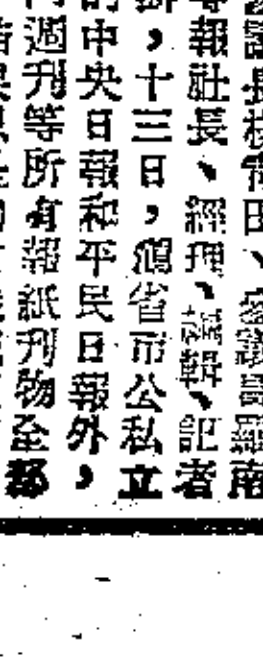 議長田、參議員南
報社長、經理、編輯、記者
，十三日，省市公私立
的中央日報和平民日報外，
週刊等所有報紙刊物全部